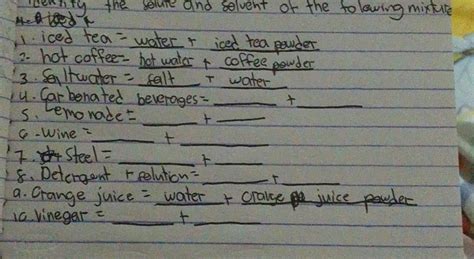 Identify the solute and solvent of the following mixture
1. iced tea = water + iced tea powder
2. hot coffee = hot water + coffee powder
3. Saltwater = salt + water
4. Carbonated beverages = ____ + ____
5. Lemonade = ____ + ____
6. wine = ____ + ____
7. Steel = ____ + ____
8. Detergent solution = ____ + ____
9. Orange juice = water + orange juice powder
10. vinegar = ____ + ____